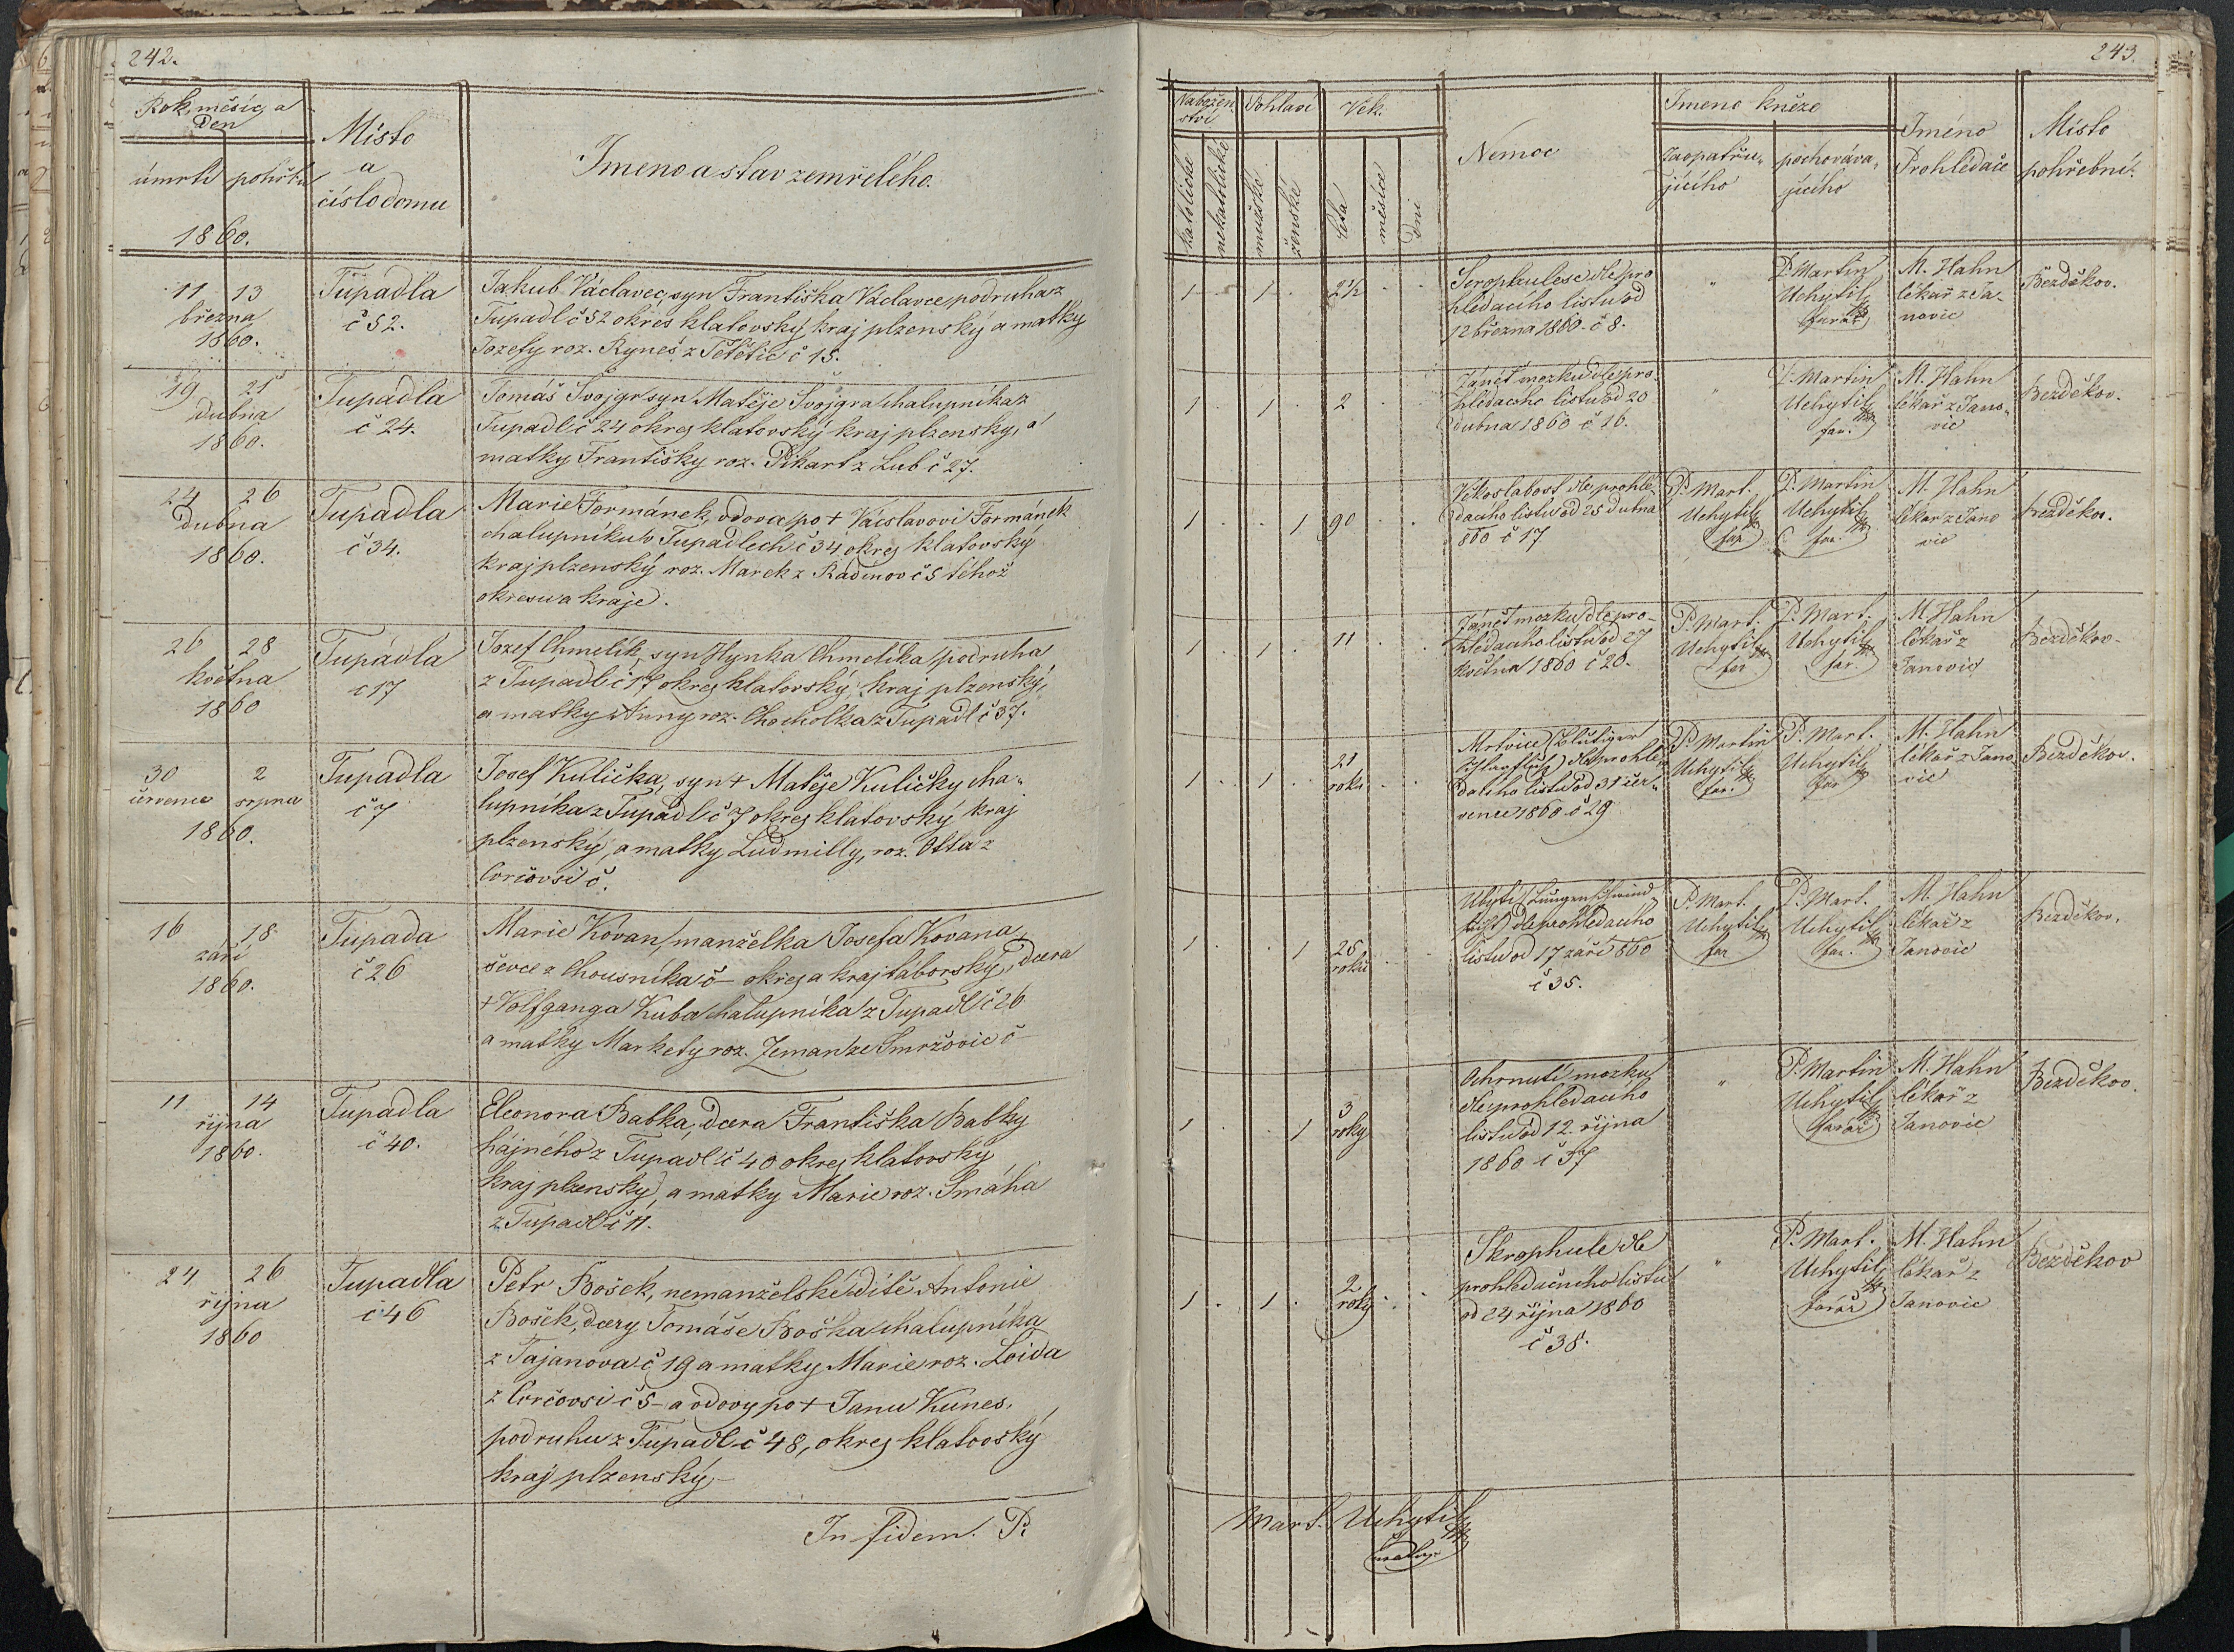 242.
Rok, měsíc, a
Den
úmrtí pohřbu
1860.
Místo
a
číslo domu
Jmeno a stav zemřelého.
11 13
března
1860.
Tupadla
č 52.
Jakub Václavec, syn Františka Václavce, podruha z
Tupadl č 52 okres klatovský, kraj plzenský a matky
Jozefy roz. Ryneš z Tětětic č 15.
19 21
dubna
1860.
Tupadla
č 24.
Tomáš Švojgr syn Matěje Švojgra chalupníka z
Tupadl č 24 okres klatovský kraj plzenský, a
matky Františky roz. Pikart z Lub č 27.
24 26
dubna
1860.
Tupadla
č 34.
Marie Formánek, vdova po + Václavovi Formánek
chalupníku v Tupadlech č 34 okres klatovský
kraj plzenský roz. Marek z Radinov č 5 téhož
okresu a kraje.
26 28
května
1860
Tupadla
č 17
Jozef Chmelík, syn Hynka Chmelíka podruha
z Tupadl č 17 okres klatovský, kraj plzenský,
a matky Anny roz. Chocholka z Tupadl č 37.
30 2
července srpna
1860.
Tupadla
č 7
Josef Kulička, syn + Matěje Kuličky cha-
lupníka z Tupadl č 7 okres klatovský kraj
plzenský, a matky Ludmilly, roz. Otta z
Corčovsi č.
16 18
září
1860.
Tupada
č 26
Marie Kovan, manželka Josefa Kovana,
ševce z Chousníka č – okres a kraj táborský, dcera
+ Volfganga Kuba chalupníka z Tupadl č 26
a matky Markety roz. Zeman ze Smržovic č –
11 14
října
1860.
Tupadla
č 40.
Eleonora Babka, dcera Františka Babky
hájného z Tupadl č 40 okres klatovský
kraj plzenský, a matky Marie roz. Smáha
z Tupadl č 11.
24 26
října
1860
Tupadla
č 46
Petr Bošek, nemanželské dítě Antonie
Bošek, dcery Tomáše Boška chalupníka
z Tajanova č 19 a matky Marie roz. Loida
z Corčovsi č 5 – a vdovy po + Janu Kunes,
podruhu z Tupadl č 48, okres klatovský
kraj plzenský –
In fidem. P.
243.
Nabožen-
ství
katolické
nekatolické
Pohlaví
mužské
ženské
Věk.
leta
měsíce
Dni
Nemoc
Jmeno kněze
zaopatřu-
jícího
pochováva-
jícího
Jméno
Prohledače
Místo
pohřební.
1 . 1 . 2½ . .
Scrophulese dle pro
hledacího listu od
12 března 1860. č 8.
"
P. Martin
Uchytil
farář
M. Hahn
lékař z Ja-
novic
Bezděkov.
1 . 1 . 2 . .
Zánět mozku dle pro-
hledacího listu od 20
dubna 1860 č 16.
"
P. Martin
Uchytil
far.
M. Hahn
lékař z Jano-
vic
Bezděkov.
1 . . 1 90 . .
Věkoslabost dle prohle-
dacího listu od 25 dubna
860 č 17
P. Mart.
Uchytil
far.
P. Martin
Uchytil
far.
M. Hahn
lékař z Jano
vic
Bezděkov.
1 . 1 . 11 . .
Zánět mozku dle pro-
hledacího listu od 27
května 1860 č 20.
P. Mart.
Uchytil
far
P. Mart.
Uchytil
far.
M. Hahn
lékař z
Janovic
Bezděkov.
1 . 1 . 21
roků . .
Mrtvice (Blutiger
Schlagfluß) dle prohle-
dacího listu od 31 čer-
vence 1860 č 29
P. Martin
Uchytil
far.
P. Mart.
Uchytil
far
M. Hahn
lékař z Jano
vic
Bezděkov.
1 . . 1 25
roků . .
Ubytí (Lungenschwind
sucht) dle prohledacího
listu od 17 září 860
č 35.
P. Mart.
Uchytil
far
P. Mart.
Uchytil
far.
M. Hahn
lékař z
Janovic
Bezděkov.
1 . . 1 3
roky
Ochrnutí mozku
dle prohledacího
listu od 12. října
1860 č 37
"
P. Martin
Uchytil
farář
M. Hahn
lékař z
Janovic
Bezděkov.
1 . 1 . 2
roky . .
Skrophule dle
prohledačního listu
od 24 října 1860
č 38.
"
P. Mart.
Uchytil
farář
M. Hahn
lékař z
Janovic
Bezděkov
Mart. Uchytil